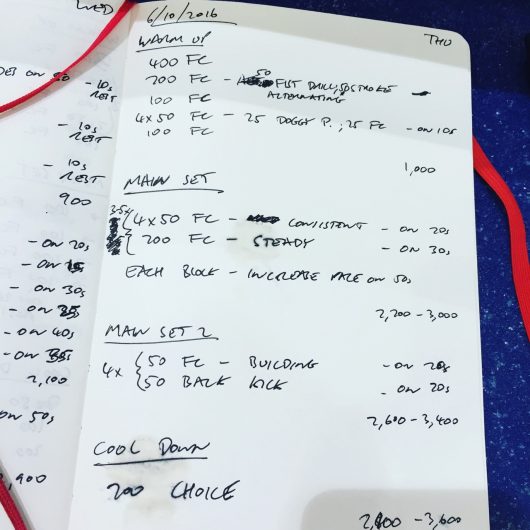 WED
DES ON 50 - 10s
REST
- 10s
REST
- 10s
REST
900
- ON 20s
- ON
- ON 30s
- ON 35
- ON 40s
- ON
2,100
ON 50s
,900
6/10/2016
THU
WARM UP
400 FC
200 FC - 50 FIST DRILL/50 STROKE
ALTERNATING
100 FC
4x50 FC - 25 DOGGY P. ; 25 FC - ON 10s
100 FC
1,000
MAIN SET
3-5x
4x50 FC - CONSISTENT - ON 20s
200 FC - STEADY - ON 30s
EACH BLOCK - INCREASE PACE ON 50s
2,200 - 3,000
MAIN SET 2
4x 50 FC - BUILDING - ON 20s
50 BACK KICK - ON 20s
2,600 - 3,400
COOL DOWN
200 CHOICE
2,800 - 3,600